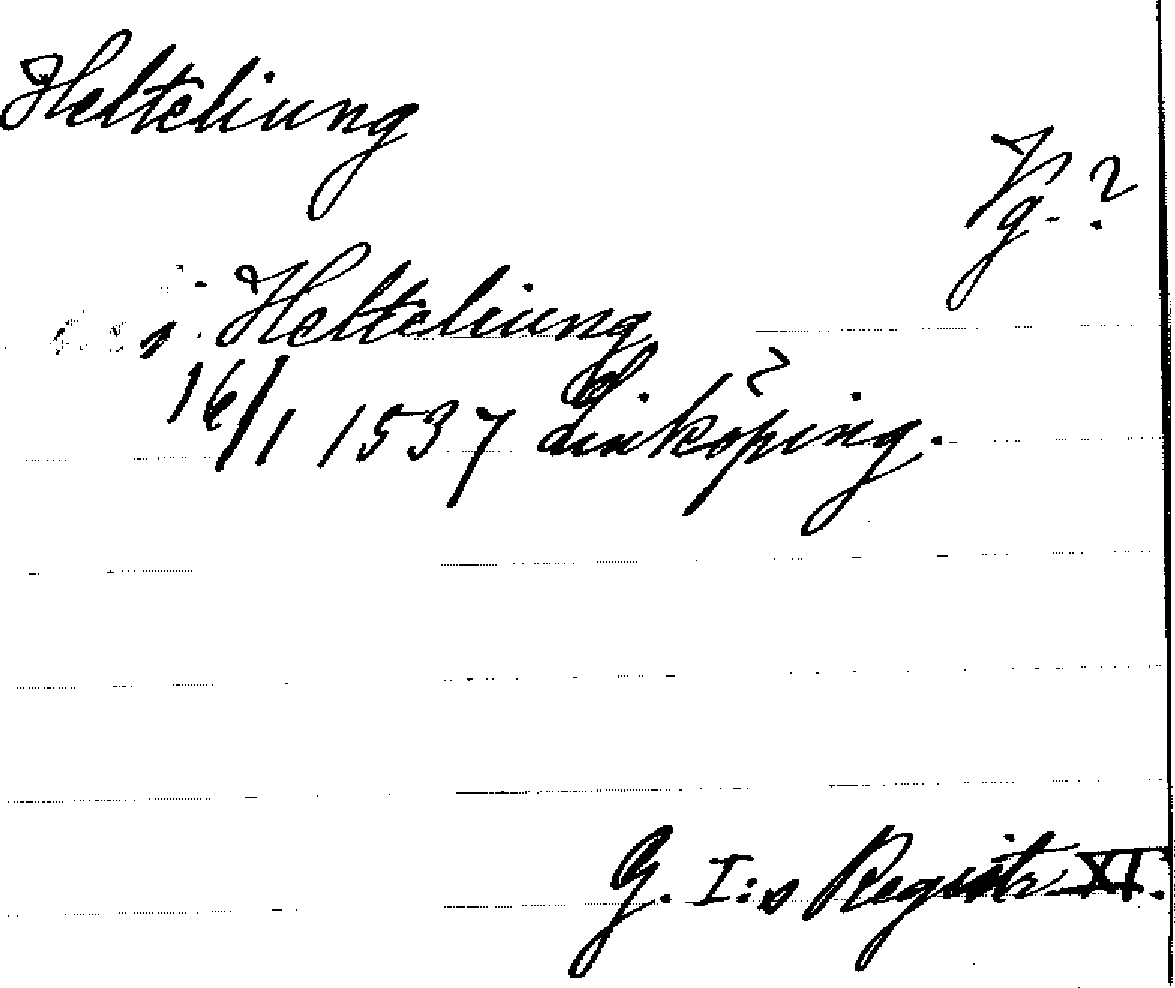 Helteliung
Vg. ?
i Helteliung
16/1 1537 Linköping.
G. I:s Registr XI.